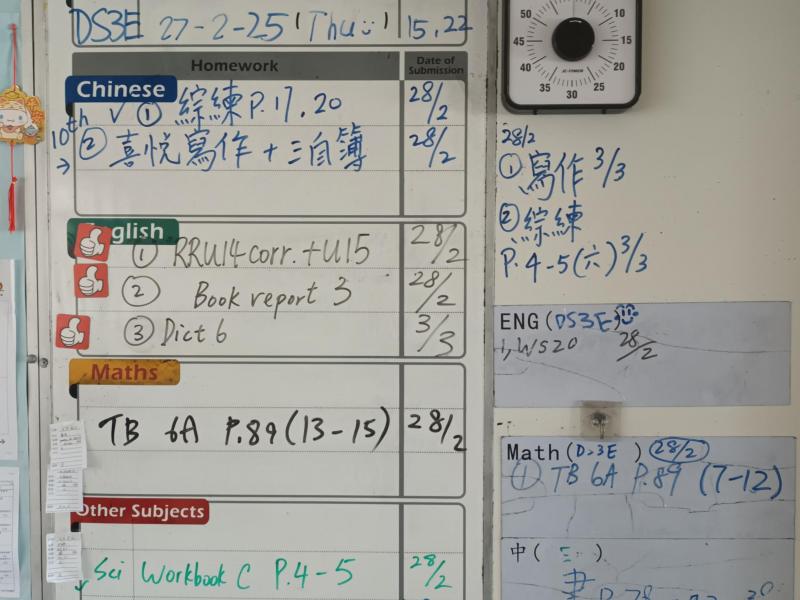 DS3E 27-2-25 (Thu) 15, 22
Homework Date of Submission
Chinese
10th → ✓ ① 綜練 P.17, 20 28/2
② 喜悅寫作 + 三自簿 28/2
English
① RRU14 corr. + U15 28/2
② Book report 3 28/2
③ Dict 6 3/3
Maths
TB 6A P.89 (13-15) 28/2
Other Subjects
✓ Sci Workbook C P.4-5 28/2
50 10
45 15
40 20
35 30 25
28/2
① 寫作 3/3
② 綜練
P.4-5 (六) 3/3
ENG (DS3E)
1, WS20 28/2
Math (D.3E ) 28/2
① TB 6A P.89 (7-12)
中 (